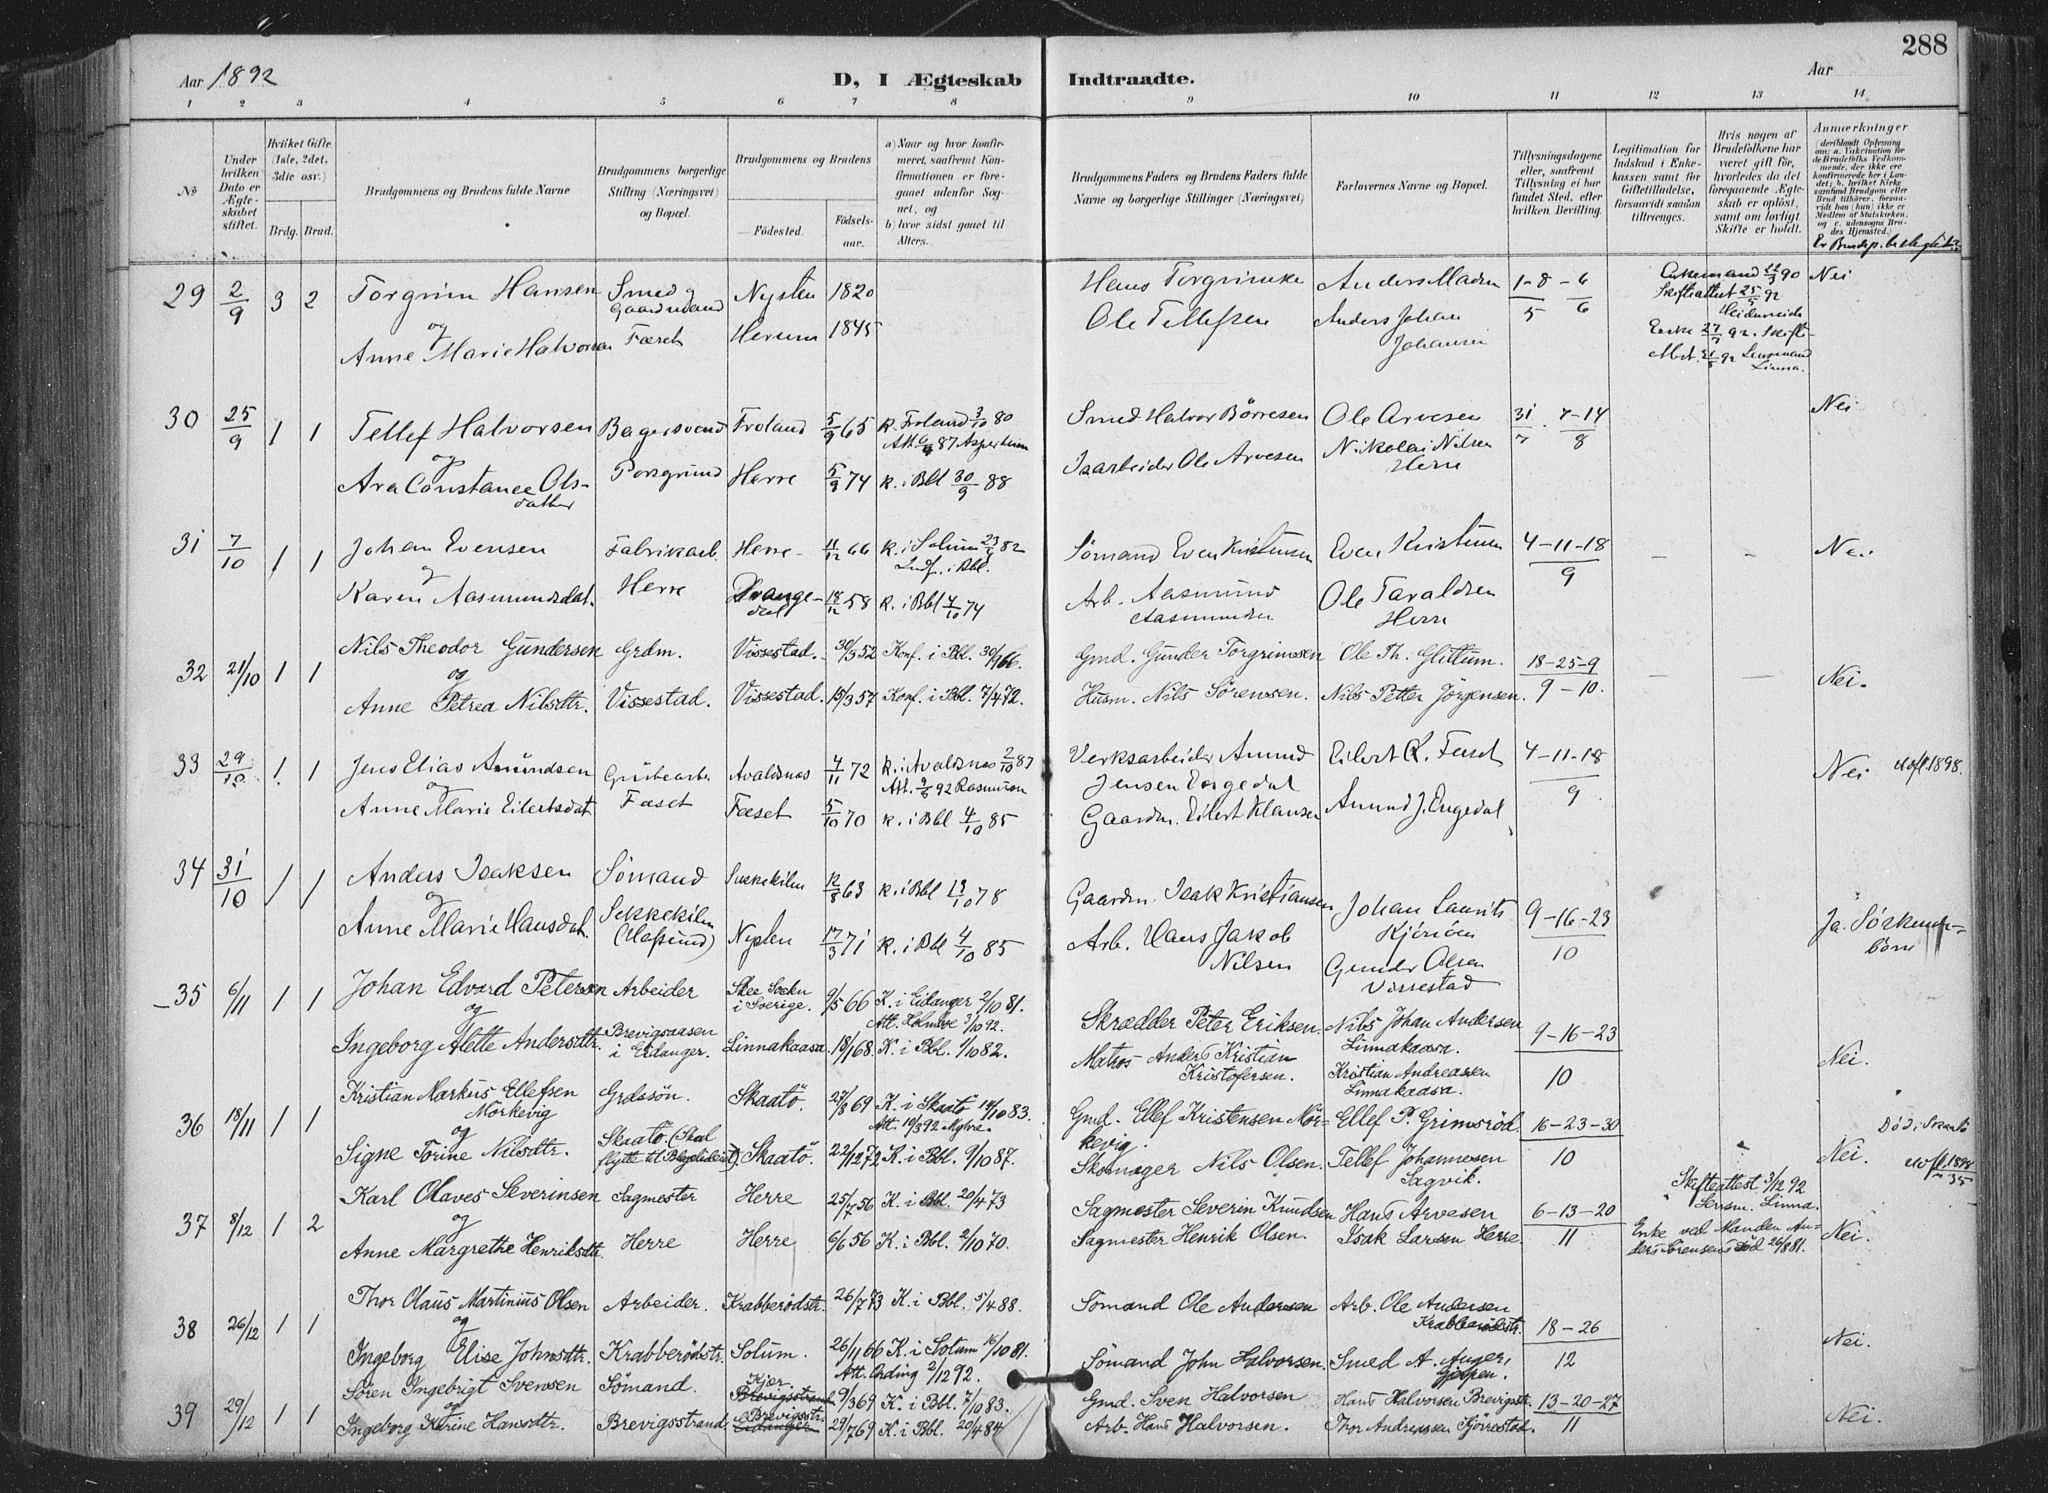 288
Aar 1892
D, I Ægteskab Indtraadte.
Aar
1 2 3 4 5 6 7 8 9 10 11 12 13 14
No
Under hvilken Dato er Ægteskabet stiftet.
Hvilket Gifte (1ste, 2det, 3die osv.)
Brdg. Brud.
Brudgommens og Brudens fulde Navne
Brudgommens borgerlige Stilling (Næringsvei) og Bopæl.
Brudgommens og Brudens
Födested. Födselsaar.
a) Naar og hvor konfirmeret, saafremt Konfirmationen er foregaaet udenfor Sognet, og
b) hvor sidst gaaet til Alters.
Brudgommens Faders og Brudens Faders fulde Navne og borgerlige Stillinger (Næringsvei)
Forlovernes Navne og Bopæl.
Tillysningsdagene eller, saafremt Tillysning ei har fundet Sted, efter hvilken Bevilling.
Legitimation for Indskud i Enkekassen samt for Giftetilladelse, forsaavidt saadan tiltrenges.
Hvis nogen af Brudefolkene har været gift før, hvorledes da det foregaaende Ægteskab er opløst, samt om lovligt Skifte er holdt.
Anmerkninger
29 2/9 3 2 Torgrim Hansen Smed og Gaardmand Nysten 1820 Hans Torgrimsen Anders Madsen 1-8-6 Nei
og
Anne Marie Halvorsen Fæset Herum 1845 Ole Tellefsen Anders Johan Johansen
30 25/9 1 1 Tellef Halvorsen Bagersvend Froland 5/9 65 k. Froland 3/10 80 Smed Halvor Börresen Ole Arvesen 31/7 . 7-14/8 Nei
og
Ara Constance Olsdatter Porsgrund Herre 5/9 74 k. i Bbl 30/9 88 Isarbeider Ole Arvesen Nikolai Nilsen Herre
31 7/10 1 1 Johan Evensen Fabrikarb. Herre 11/12 66 k. i Solum 82 Sömand Even Kristensen Even Kristensen 4-11-18/9 Nei
og
Karen Aasmundsdat. Herre Drangedal 18/12 58 k. i Bbl 4/10 74 Arb. Aasmund Aasmundsen Ole Taraldsen Herre
32 21/10 1 1 Nils Theodor Gundersen Grdm. Vissestad. 30/3 52 Konf. i Bbl. 30/9 66. Gmd. Gunder Torgrimsen Ole Th. Glittum. 18-25-9
og
Anne Petrea Nilsdtr. Vissestad. Vissestad. 15/3 57 Konf. i Bbl. 7/4 72. Husm. Nils Sörensen. Nils Petter Jörgensen. 9-10. Nei.
33 29/10 1 1 Jens Elias Amundsen Grubearb. Avaldsnes 4/11 72 k. i Avaldsnes 2/10 87 Verksarbeider Amund Jensen Engedal Eilert K. Feset 4-11-18/9 Nei 1898.
og
Anne Marie Eilertsdat. Fæset Fæset 5/10 70 k. i Bbl 4/10 85 Gaardm. Eilert Klausen Amund J. Engedal
34 31/10 1 1 Anders Isaksen Sömand 12/8 63 k. i Bbl 13/10 78 Gaardm. Isak Kristiansen Johan Laurits 9-16-23/10 Ja.
og
Anne Marie Hansdat. Nysten 17/3 71 k. i Bbl 4/10 85 Arb. Hans Jakob Nilsen Gunder Olsen Vissestad
35 6/11 1 1 Johan Edvard Petersen Arbeider Skee Sokn i Sverige. 9/5 66 K. i Eidanger 2/10 81. Skrædder Peter Eriksen. Nils Johan Andersen Linnakaasa. 9-16-23
og
Ingeborg Alette Andersdtr. Brevigsaasen i Eidanger. Linnakaasa 18/1 68. K. i Bbl. 1/10 82. Matros Anders Kristian Kristofersen. Kristian Andreassen Linnakaasa. 10 Nei.
36 18/11 1 1 Kristian Markus Ellefsen Mörkevig Grdssön. Skaatö 27/3 69 K. i Skaatö 14/10 83. Gmd. Ellef Kristensen Mörkevig. Ellef P. Grimsröd 16-23-30
og
Signe Torine Nilsdtr. Skaatö. Skaatö. 22/12 72 K. i Bbl. 9/10 87. Skomager Nils Olsen. Tellef Johannesen Sagvik. 10 Nei.
37 8/12 1 2 Karl Olaves Severinsen Sagmester Herre 25/7 56 K. i Bbl. 20/4 73 Sagmester Severin Knudsen Hans Arvesen 6-13-20 Skifteattest 3/12 92 Lensm. Linna.
og
Anne Margrethe Henriksdtr. Herre Herre 6/6 56 K. i Bbl. 2/10 70. Sagmester Henrik Olsen. Isak Larsen Herre. 11 Enke ved Manden Anders Sörensens Död 26/8 81. Nei.
38 26/12 1 1 Thor Olaus Martinius Olsen Arbeider. Krabberödstr. 26/7 73 K. i Bbl. 5/4 88. Sömand Ole Andersen Arb. Ole Andersen Krabberödstr. 18-26
og
Ingeborg Elise Johnsdtr. Krabberödstr. Solum. 26/11 66 K. i Solum 16/10 81. Att. Ording 2/12 92. Sömand John Halvorsen. Smed A. Auger, Gjerpen. 12 Nei.
39 29/12 1 1 Sören Ingebrigt Svensen Sömand. Kjær 9/3 69 K. i Bbl. 7/10 83. Gmd. Sven Halvorsen Hans Halvorsen Brevigstr. 13-20-27
og
Ingeborg Karine Hansdtr. Brevigsstrand Brevigsstr. 29/7 69 K. i Bbl. 20/4 84 Arb. Hans Halvorsen. Thor Andreassen Sjörrestad. 11 Nei.